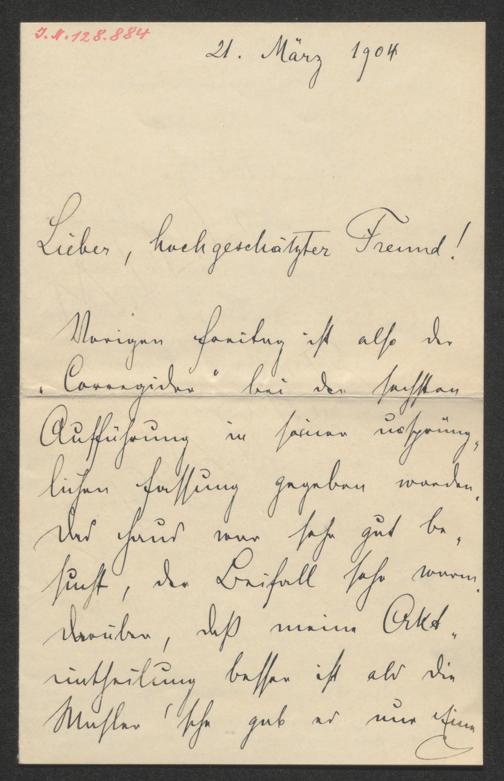 J.N.128.884
21. März 1904
Lieber, hochgeschätzter Freund!
Vorigen Freitag ist also der
„Corregidor" bei der sechsten
Aufführung in seiner ursprüng„
lichen Fassung gegeben worden.
Das Haus war sehr gut be„
sucht, der Beifall sehr warm.
Darüber, daß meine Akt„
eintheilung besser ist als die
Mahler'sche gab es nur Eine